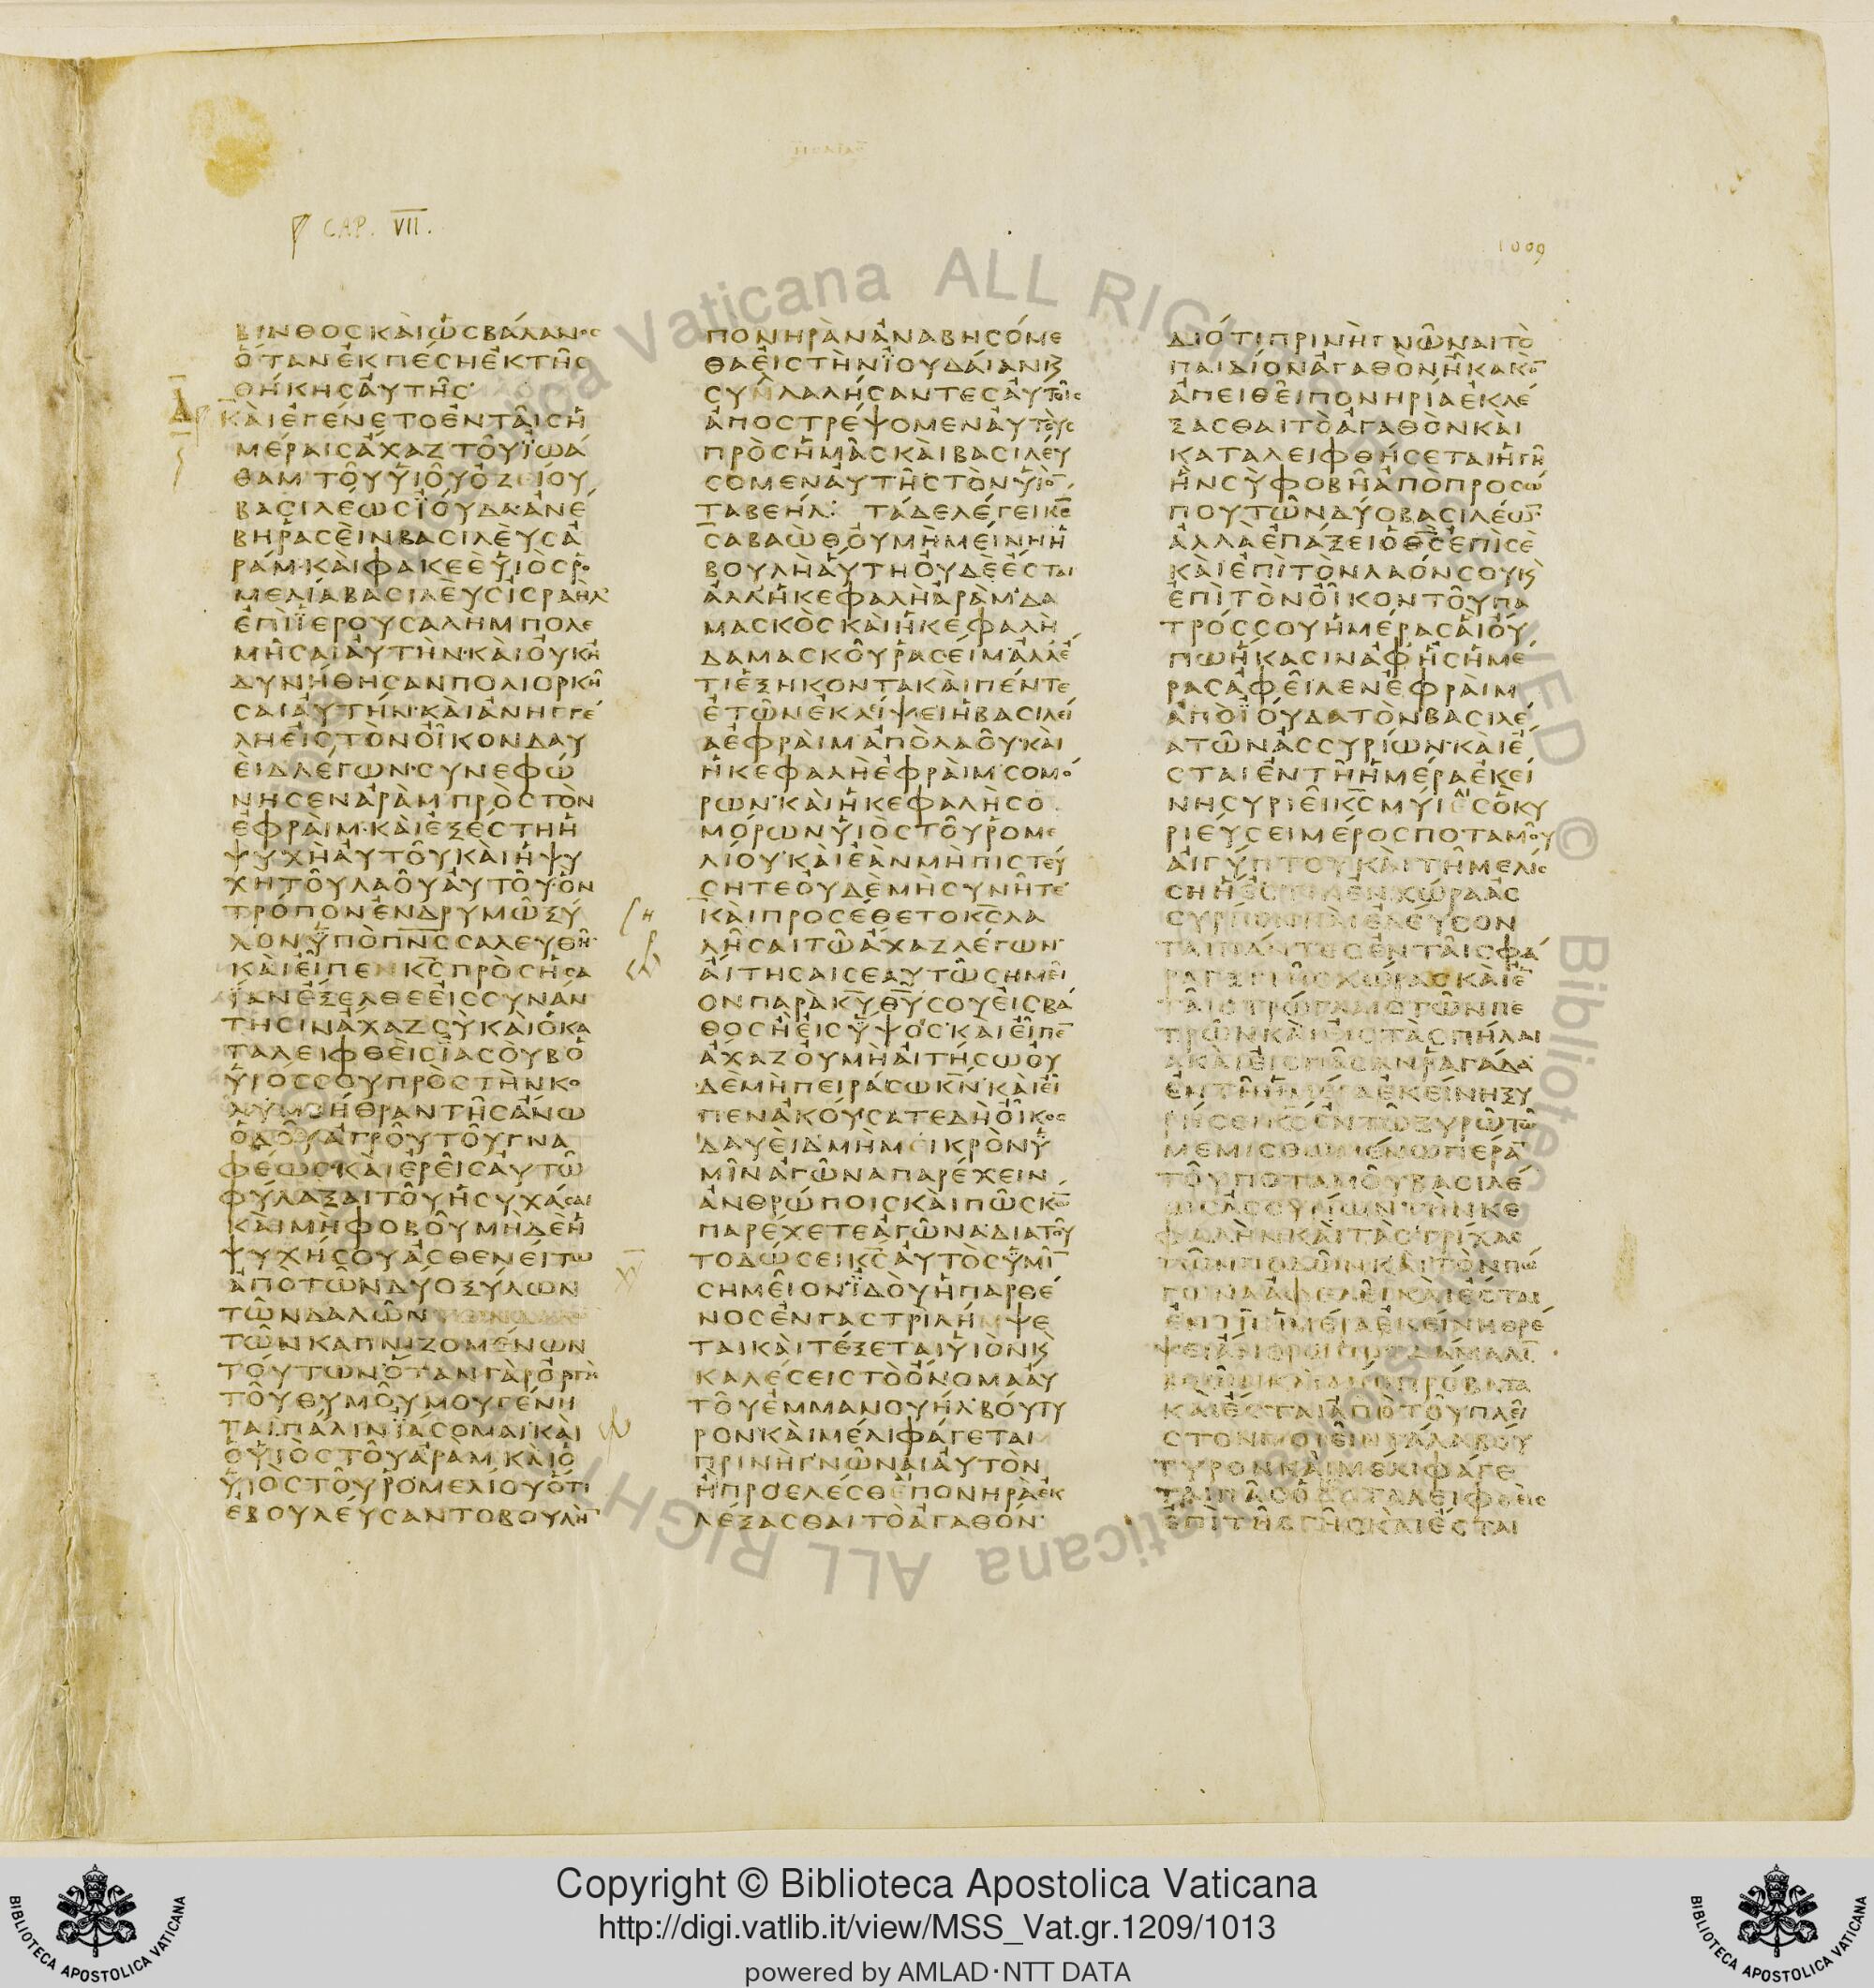 CAP. VII.
1009
ΒΙΝΘΟΣ ΚΑΙ ΩΣ ΒΑΛΑΝΟΣ
ΟΤΑΝ ΕΚΠΕΣΗ ΕΚ ΤΗΣ
ΘΗΚΗΣ ΑΥΤΗΣ
ΚΑΙ ΕΓΕΝΕΤΟ ΕΝ ΤΑΙΣ Η
ΜΕΡΑΙΣ ΑΧΑΖ ΤΟΥ ΙΩΑ
ΘΑΜ ΤΟΥ ΥΙΟΥ ΟΖΕΙΟΥ
ΒΑΣΙΛΕΩΣ ΙΟΥΔΑ ΑΝΕ
ΒΗ ΡΑΣΕΙΝ ΒΑΣΙΛΕΥΣ Α
ΡΑΜ ΚΑΙ ΦΑΚΕΕ ΥΙΟΣ ΡΟ
ΜΕΛΙΑ ΒΑΣΙΛΕΥΣ ΙΣΡΑΗΛ
ΕΠΙ ΙΕΡΟΥΣΑΛΗΜ ΠΟΛΕ
ΜΗΣΑΙ ΑΥΤΗΝ ΚΑΙ ΟΥΚ Η
ΔΥΝΗΘΗΣΑΝ ΠΟΛΙΟΡΚΗ
ΣΑΙ ΑΥΤΗΝ ΚΑΙ ΑΝΗΓΓΕ
ΛΗ ΕΙΣ ΤΟΝ ΟΙΚΟΝ ΔΑΥ
ΕΙΔ ΛΕΓΩΝ ΣΥΝΕΦΩ
ΝΗΣΕΝ ΑΡΑΜ ΠΡΟΣ ΤΟΝ
ΕΦΡΑΙΜ ΚΑΙ ΕΞΕΣΤΗ Η
ΨΥΧΗ ΑΥΤΟΥ ΚΑΙ Η ΨΥ
ΧΗ ΤΟΥ ΛΑΟΥ ΑΥΤΟΥ ΟΝ
ΤΡΟΠΟΝ ΕΝ ΔΡΥΜΩ ΞΥ
ΛΟΝ ΥΠΟ ΠΝΣ ΣΑΛΕΥΘΗ
ΚΑΙ ΕΙΠΕΝ ΚΣ ΠΡΟΣ ΗΣΑ
ΙΑΝ ΕΞΕΛΘΕ ΕΙΣ ΣΥΝΑΝ
ΤΗΣΙΝ ΑΧΑΖ ΣΥ ΚΑΙ Ο ΚΑ
ΤΑΛΕΙΦΘΕΙΣ ΙΑΣΟΥΒ Ο
ΥΙΟΣ ΣΟΥ ΠΡΟΣ ΤΗΝ ΚΟ
ΛΥΜΒΗΘΡΑΝ ΤΗΣ ΑΝΩ
ΟΔΟΥ ΑΓΡΟΥ ΤΟΥ ΓΝΑ
ΦΕΩΣ ΚΑΙ ΕΡΕΙΣ ΑΥΤΩ
ΦΥΛΑΞΑΙ ΤΟΥ ΗΣΥΧΑΣΑΙ
ΚΑΙ ΜΗ ΦΟΒΟΥ ΜΗΔΕ Η
ΨΥΧΗ ΣΟΥ ΑΣΘΕΝΕΙΤΩ
ΑΠΟ ΤΩΝ ΔΥΟ ΞΥΛΩΝ
ΤΩΝ ΔΑΛΩΝ
ΤΩΝ ΚΑΠΝΙΖΟΜΕΝΩΝ
ΤΟΥΤΩΝ ΟΤΑΝ ΓΑΡ ΟΡΓΗ
ΤΟΥ ΘΥΜΟΥ ΜΟΥ ΓΕΝΗ
ΤΑΙ ΠΑΛΙΝ ΙΑΣΟΜΑΙ ΚΑΙ
Ο ΥΙΟΣ ΤΟΥ ΑΡΑΜ ΚΑΙ Ο
ΥΙΟΣ ΤΟΥ ΡΟΜΕΛΙΟΥ ΟΤΙ
ΕΒΟΥΛΕΥΣΑΝΤΟ ΒΟΥΛΗ̅
ΠΟΝΗΡΑΝ ΑΝΑΒΗΣΟΜΕ
ΘΑ ΕΙΣ ΤΗΝ ΙΟΥΔΑΙΑΝ Κ
ΣΥΝΛΑΛΗΣΑΝΤΕΣ ΑΥΤΟΙΣ
ΑΠΟΣΤΡΕΨΟΜΕΝ ΑΥΤΟΥΣ
ΠΡΟΣ ΗΜΑΣ ΚΑΙ ΒΑΣΙΛΕΥ
ΣΟΜΕΝ ΑΥΤΗΣ ΤΟΝ ΥΙΟ̅
ΤΑΒΕΗΛ ΤΑΔΕ ΛΕΓΕΙ ΚΣ
ΣΑΒΑΩΘ ΟΥ ΜΗ ΜΕΙΝΗ Η
ΒΟΥΛΗ ΑΥΤΗ ΟΥΔΕ ΕΣΤΑΙ
ΑΛΛ Η ΚΕΦΑΛΗ ΑΡΑΜ ΔΑ
ΜΑΣΚΟΣ ΚΑΙ Η ΚΕΦΑΛΗ
ΔΑΜΑΣΚΟΥ ΡΑΣΕΙΜ ΑΛΛ Ε
ΤΙ ΕΞΗΚΟΝΤΑ ΚΑΙ ΠΕΝΤΕ
ΕΤΩΝ ΕΚΛΙΨΕΙ Η ΒΑΣΙΛΕΙ
Α ΕΦΡΑΙΜ ΑΠΟ ΛΑΟΥ ΚΑΙ
Η ΚΕΦΑΛΗ ΕΦΡΑΙΜ ΣΟΜΟ
ΡΩΝ ΚΑΙ Η ΚΕΦΑΛΗ ΣΟ
ΜΟΡΩΝ ΥΙΟΣ ΤΟΥ ΡΟΜΕ
ΛΙΟΥ ΚΑΙ ΕΑΝ ΜΗ ΠΙΣΤΕΥ
ΣΗΤΕ ΟΥΔΕ ΜΗ ΣΥΝΗΤΕ
ΚΑΙ ΠΡΟΣΕΘΕΤΟ ΚΣ ΛΑ
ΛΗΣΑΙ ΤΩ ΑΧΑΖ ΛΕΓΩΝ
ΑΙΤΗΣΑΙ ΣΕΑΥΤΩ ΣΗΜΕΙ
ΟΝ ΠΑΡΑ ΚΥ ΘΥ ΣΟΥ ΕΙΣ ΒΑ
ΘΟΣ Η ΕΙΣ ΥΨΟΣ ΚΑΙ ΕΙΠΕ̅
ΑΧΑΖ ΟΥ ΜΗ ΑΙΤΗΣΩ ΟΥ
ΔΕ ΜΗ ΠΕΙΡΑΣΩ ΚΝ ΚΑΙ ΕΙ
ΠΕΝ ΑΚΟΥΣΑΤΕ ΔΗ ΟΙΚΟΣ
ΔΑΥΕΙΔ ΜΗ ΜΕΙΚΡΟΝ Υ
ΜΙΝ ΑΓΩΝΑ ΠΑΡΕΧΕΙΝ
ΑΝΘΡΩΠΟΙΣ ΚΑΙ ΠΩΣ ΚΩ
ΠΑΡΕΧΕΤΕ ΑΓΩΝΑ ΔΙΑ ΤΟΥ
ΤΟ ΔΩΣΕΙ ΚΣ ΑΥΤΟΣ ΥΜΙ̅
ΣΗΜΕΙΟΝ ΙΔΟΥ Η ΠΑΡΘΕ
ΝΟΣ ΕΝ ΓΑΣΤΡΙ ΛΗΜΨΕ
ΤΑΙ ΚΑΙ ΤΕΞΕΤΑΙ ΥΙΟΝ Κ
ΚΑΛΕΣΕΙΣ ΤΟ ΟΝΟΜΑ ΑΥ
ΤΟΥ ΕΜΜΑΝΟΥΗΛ ΒΟΥΤΥ
ΡΟΝ ΚΑΙ ΜΕΛΙ ΦΑΓΕΤΑΙ
ΠΡΙΝ Η ΓΝΩΝΑΙ ΑΥΤΟΝ
Η ΠΡΟΕΛΕΣΘΕ ΠΟΝΗΡΑ ΕΚ
ΛΕΞΑΣΘΑΙ ΤΟ ΑΓΑΘΟΝ
ΔΙΟΤΙ ΠΡΙΝ Η ΓΝΩΝΑΙ ΤΟ
ΠΑΙΔΙΟΝ ΑΓΑΘΟΝ Η ΚΑΚΟ̅
ΑΠΕΙΘΕΙ ΠΟΝΗΡΙΑ ΕΚΛΕ
ΞΑΣΘΑΙ ΤΟ ΑΓΑΘΟΝ ΚΑΙ
ΚΑΤΑΛΕΙΦΘΗΣΕΤΑΙ Η ΓΗ
ΗΝ ΣΥ ΦΟΒΗ ΑΠΟ ΠΡΟΣΩ
ΠΟΥ ΤΩΝ ΔΥΟ ΒΑΣΙΛΕΩ̅
ΑΛΛΑ ΕΠΑΞΕΙ Ο ΘΣ ΕΠΙ ΣΕ
ΚΑΙ ΕΠΙ ΤΟΝ ΛΑΟΝ ΣΟΥ Κ
ΕΠΙ ΤΟΝ ΟΙΚΟΝ ΤΟΥ ΠΑ
ΤΡΟΣ ΣΟΥ ΗΜΕΡΑΣ ΑΙ ΟΥ
ΠΩ ΗΚΑΣΙΝ ΑΦ ΗΣ ΗΜΕ
ΡΑΣ ΑΦΕΙΛΕΝ ΕΦΡΑΙΜ
ΑΠΟ ΙΟΥΔΑ ΤΟΝ ΒΑΣΙΛΕ
Α ΤΩΝ ΑΣΣΥΡΙΩΝ ΚΑΙ Ε
ΣΤΑΙ ΕΝ ΤΗ ΗΜΕΡΑ ΕΚΕΙ
ΝΗ ΣΥΡΙΕΙ ΚΣ ΜΥΙΑΙΣ Ο ΚΥ
ΡΙΕΥΣΕΙ ΜΕΡΟΣ ΠΟΤΑΜΟΥ
ΑΙΓΥΠΤΟΥ ΚΑΙ ΤΗ ΜΕΛΙΣ
ΣΗ Η ΕΣΤΙΝ ΕΝ ΧΩΡΑ ΑΣ
ΣΥΡΙΩΝ ΚΑΙ ΕΛΕΥΣΟΝ
ΤΑΙ ΠΑΝΤΕΣ ΕΝ ΤΑΙΣ ΦΑ
ΡΑΓΞΙ ΤΗΣ ΧΩΡΑΣ ΚΑΙ Ε̅
ΤΑΙΣ ΤΡΩΓΛΑΙΣ ΤΩΝ ΠΕ
ΤΡΩΝ ΚΑΙ ΕΙΣ ΤΑ ΣΠΗΛΑΙ
Α ΚΑΙ ΕΙΣ ΠΑΣΑΝ ΡΑΓΑΔΑ
ΕΝ ΤΗ ΗΜΕΡΑ ΕΚΕΙΝΗ ΞΥ
ΡΗΣΕΙ ΚΣ ΕΝ ΤΩ ΞΥΡΩ ΤΩ
ΜΕΜΙΣΘΩΜΕΝΩ ΠΕΡΑ̅
ΤΟΥ ΠΟΤΑΜΟΥ ΒΑΣΙΛΕ
ΩΣ ΑΣΣΥΡΙΩΝ ΤΗΝ ΚΕ
ΦΑΛΗΝ ΚΑΙ ΤΑΣ ΤΡΙΧΑΣ
ΤΩΝ ΠΟΔΩΝ ΚΑΙ ΤΟΝ ΠΩ
ΓΩΝΑ ΑΦΕΛΕΙ ΚΑΙ ΕΣΤΑΙ
ΕΝ ΤΗ ΗΜΕΡΑ ΕΚΕΙΝΗ ΘΡΕ
ΨΕΙ ΑΝΘΡΩΠΟΣ ΔΑΜΑΛΙ̅
ΒΟΩΝ ΚΑΙ ΔΥΟ ΠΡΟΒΑΤΑ
ΚΑΙ ΕΣΤΑΙ ΑΠΟ ΤΟΥ ΠΛΕΙ
ΣΤΟΝ ΠΟΙΕΙΝ ΓΑΛΑ ΒΟΥ
ΤΥΡΟΝ ΚΑΙ ΜΕΛΙ ΦΑΓΕ
ΤΑΙ ΠΑΣ Ο ΚΑΤΑΛΕΙΦΘΕΙΣ
ΕΠΙ ΤΗΣ ΓΗΣ ΚΑΙ ΕΣΤΑΙ
Copyright © Biblioteca Apostolica Vaticana
http://digi.vatlib.it/view/MSS_Vat.gr.1209/1013
powered by AMLAD·NTT DATA
BIBLIOTECA APOSTOLICA VATICANA
BIBLIOTECA APOSTOLICA VATICANA